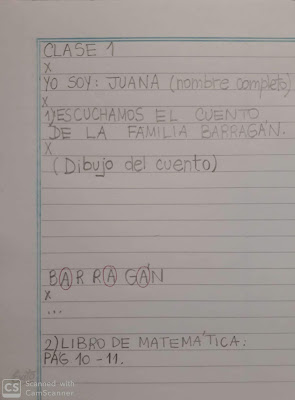 CLASE 1
X
YO SOY: JUANA (nombre completo)
X
1) ESCUCHAMOS EL CUENTO
DE LA FAMILIA BARRAGÁN.
X
(Dibujo del cuento)
BARRAGÁN
X
...
2) LIBRO DE MATEMÁTICA:
PÁG. 10-11.
CS Scanned with
CamScanner